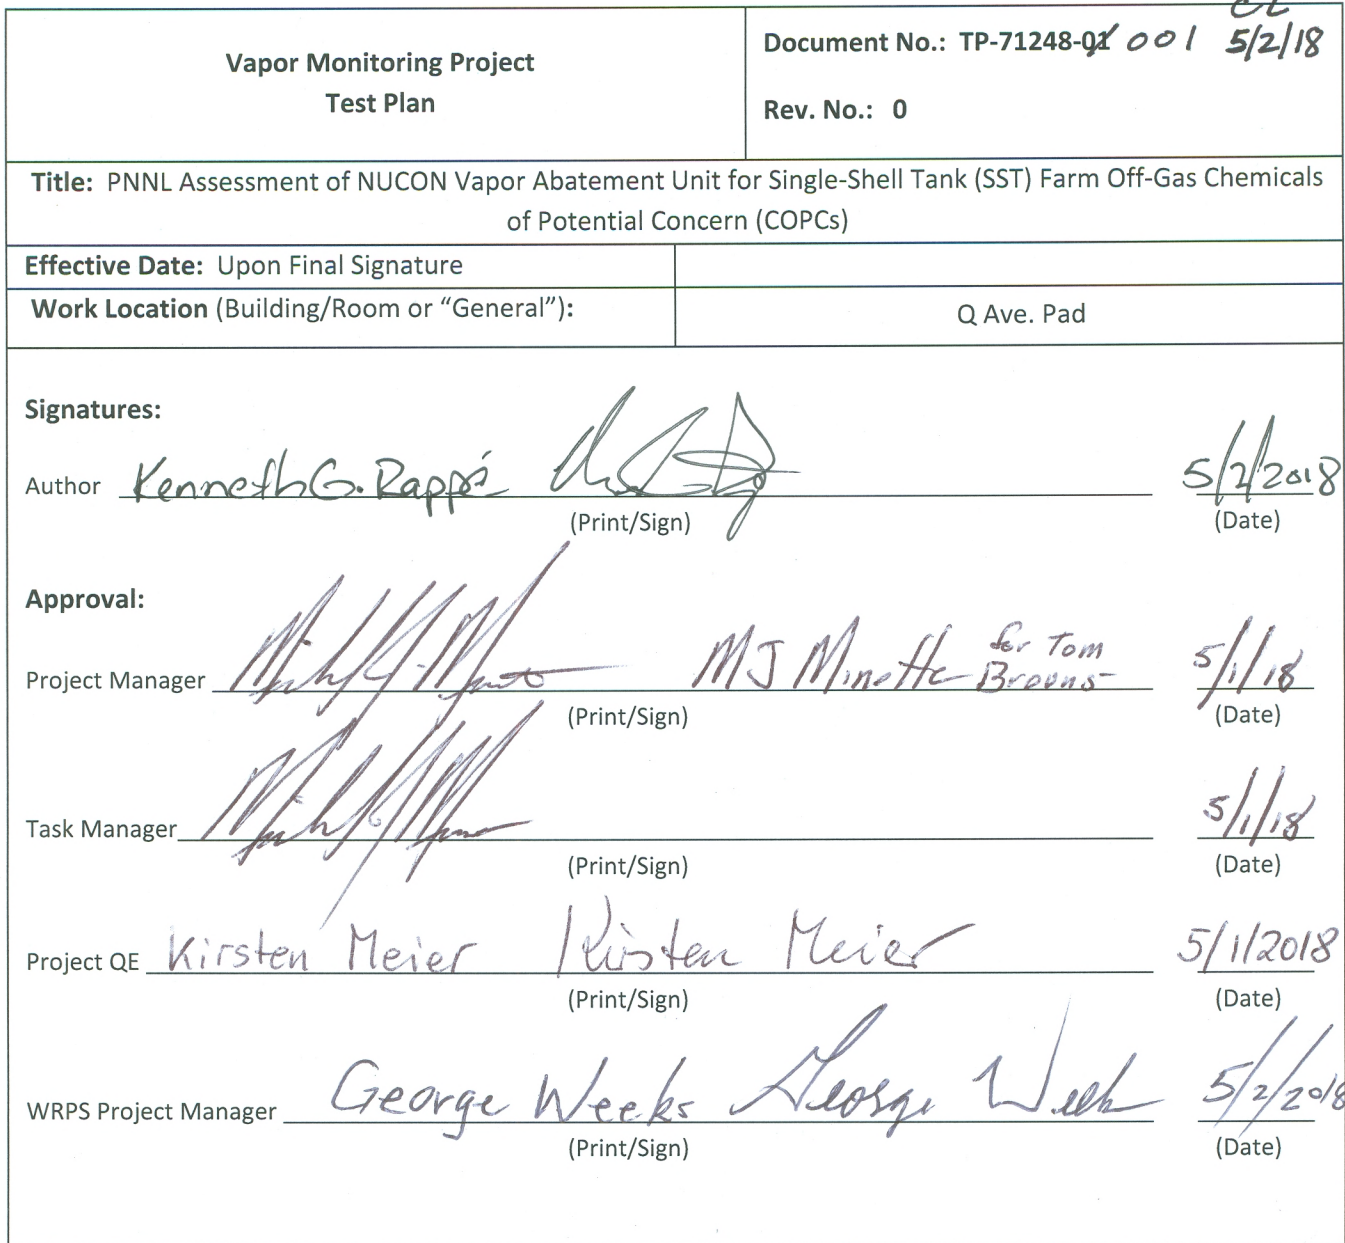 Vapor Monitoring Project
Test Plan
Document No.: TP-71248-01 001 5/2/18
Rev. No.: 0
Title: PNNL Assessment of NUCON Vapor Abatement Unit for Single-Shell Tank (SST) Farm Off-Gas Chemicals
of Potential Concern (COPCs)
Effective Date: Upon Final Signature
Work Location (Building/Room or “General”):
Q Ave. Pad
Signatures:
Author Kenneth G. Rappé 5/2/2018
(Print/Sign) (Date)
Approval:
Project Manager MJ Minette for Tom
Brouns 5/1/18
(Print/Sign) (Date)
Task Manager 5/1/18
(Print/Sign) (Date)
Project QE Kirsten Meier Kirsten Meier 5/1/2018
(Print/Sign) (Date)
WRPS Project Manager George Weeks George Weeks 5/2/2018
(Print/Sign) (Date)